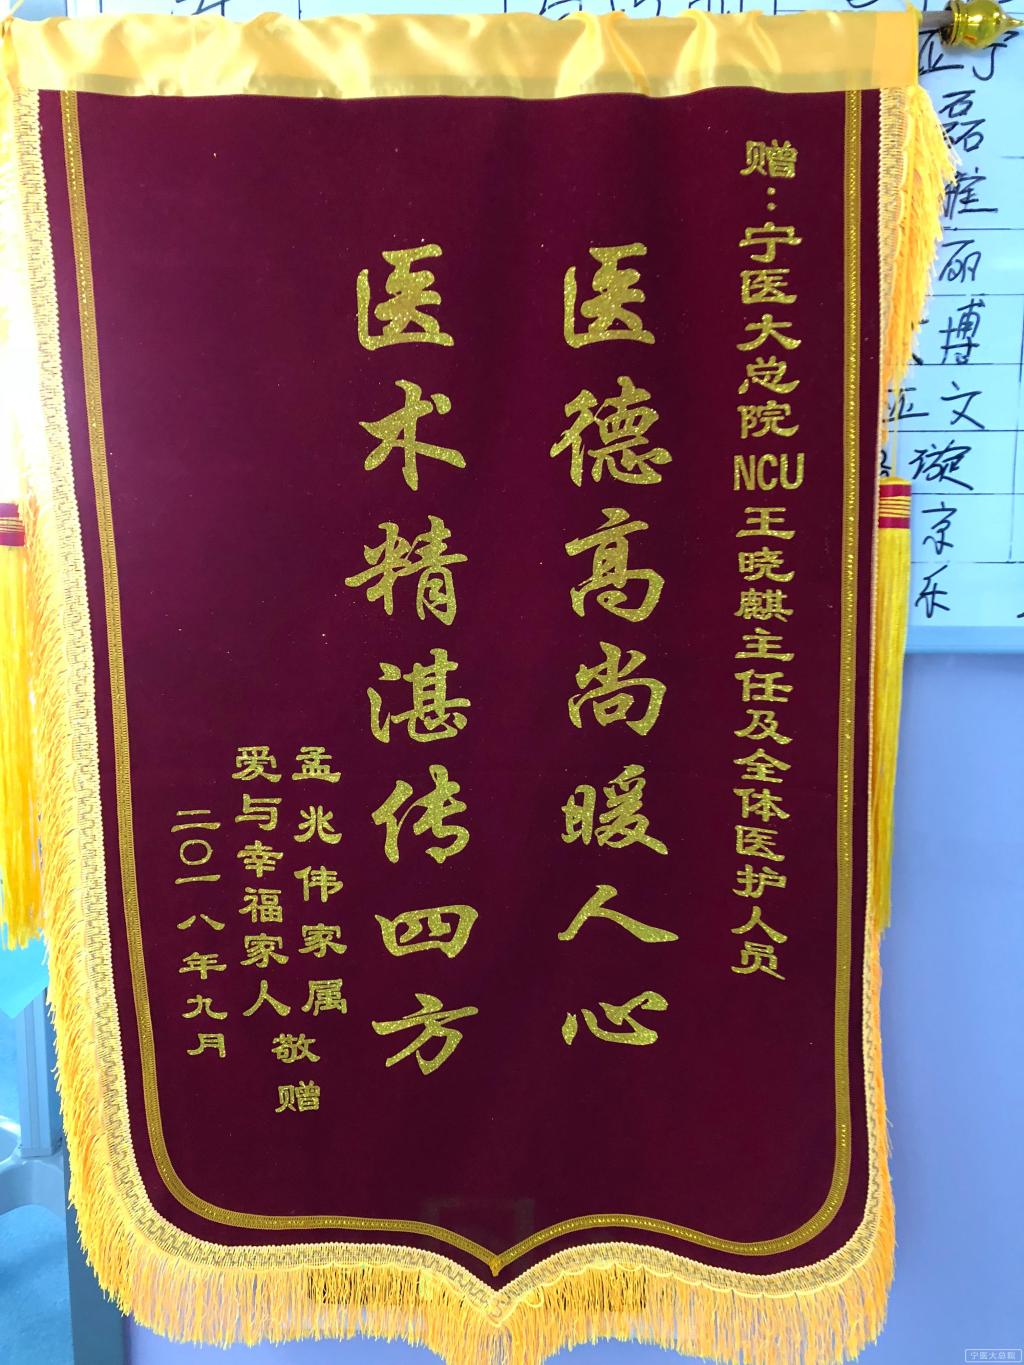 赠：宁医大总院NCU王晓麒主任及全体医护人员
医德高尚暖人心
医术精湛传四方
孟兆伟家属
爱与幸福家人
敬赠
二〇一八年九月
亚宁
磊
丽
博
亚文
璇
京
乐
宁医大总院